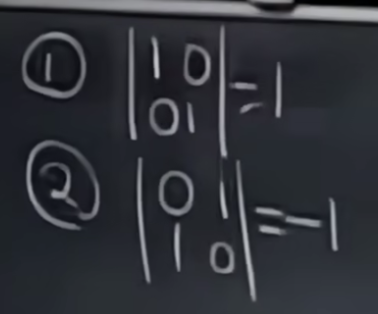 ① |1 0|
|0 1| = 1
② |0 1|
|1 0| = -1